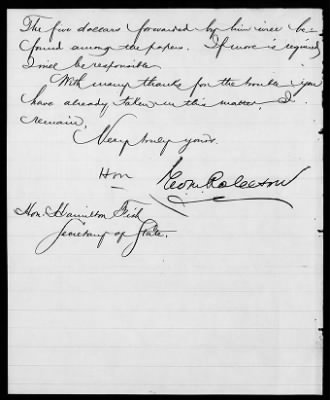 The five dollars forwarded by him will be
found among the papers. If more is required
I will be responsible
With many thanks for the trouble you
have already taken in this matter, I
remain,
Very truly yours.
Hon
Geo M Robeson
Hon. Hamilton Fish
Secretary of State.